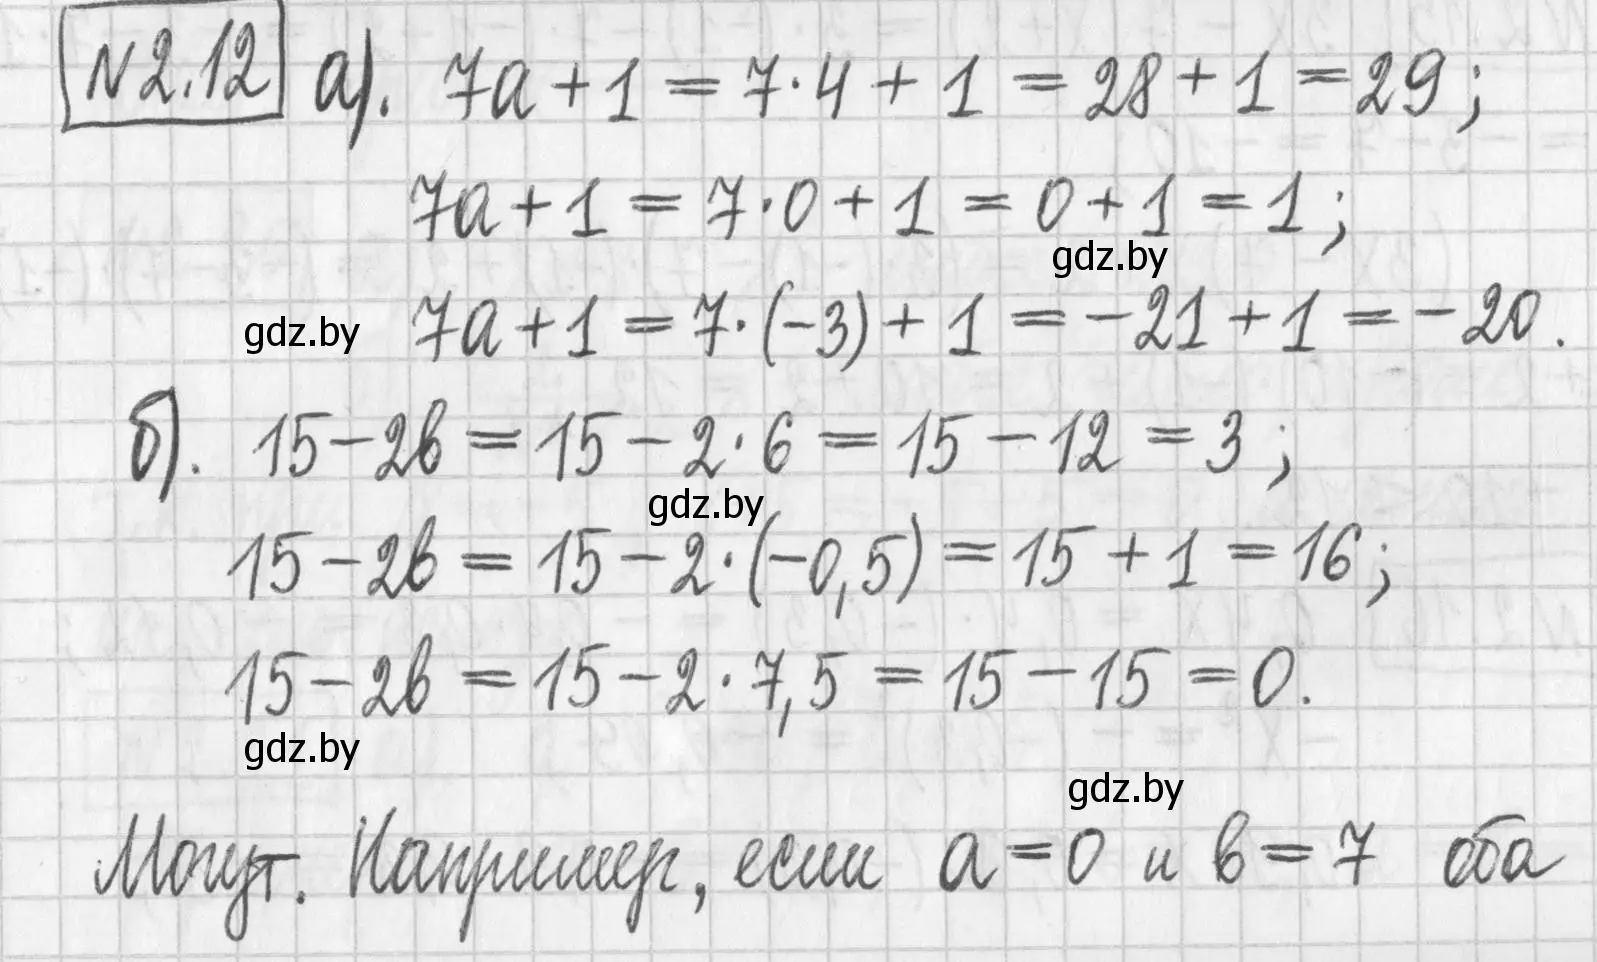 N2.12 а). 7a + 1 = 7·4 + 1 = 28 + 1 = 29;
7a + 1 = 7·0 + 1 = 0 + 1 = 1;
gdz.by
7a + 1 = 7·(-3) + 1 = -21 + 1 = -20.
gdz.by
б). 15 - 2в = 15 - 2·6 = 15 - 12 = 3;
gdz.by
15 - 2в = 15 - 2·(-0,5) = 15 + 1 = 16;
15 - 2в = 15 - 2·7,5 = 15 - 15 = 0.
gdz.by
gdz.by
Могут. Например, если a = 0 и в = 7 оба